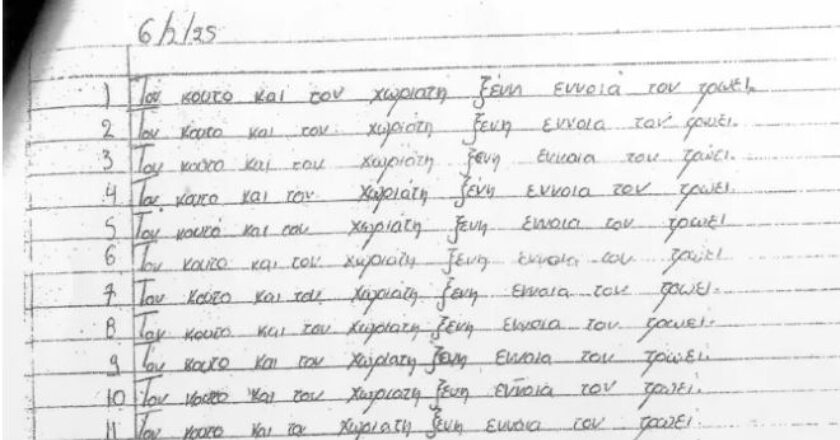 6/2/25
1 Τον κουτο και τον χωριατη ξένη εννοιά τον τρωει.
2 Τον κουτο και τον χωριάτη ξενη εννοια τον τρωει.
3 Τον κουτο και τον χωριατη ξενη εννοια τον τρωει.
4 Τον κουτο και τον χωριάτη ξένη εννοια τον τρωει.
5 Τον κουτό και τον χωριάτη ξενη εννοια τον τρωει
6 Τον κουτο και τον χωριατη ξενη εννοια τον τρωει
7 Τον κουτο και τον χωριατη ξενη εννοια τον τρωει.
8 Τον κουτο και τον χωριατη ξενη εννοια τον τρωει.
9 Τον κουτο και τον χωριατη ξενη εννοια τον τρωει.
10 Τον κουτο και τον χωριατη ξενη εννοια τον τρωει.
11 Τον κουτο και το χωριατη ξενη εννοια τον τρωει.